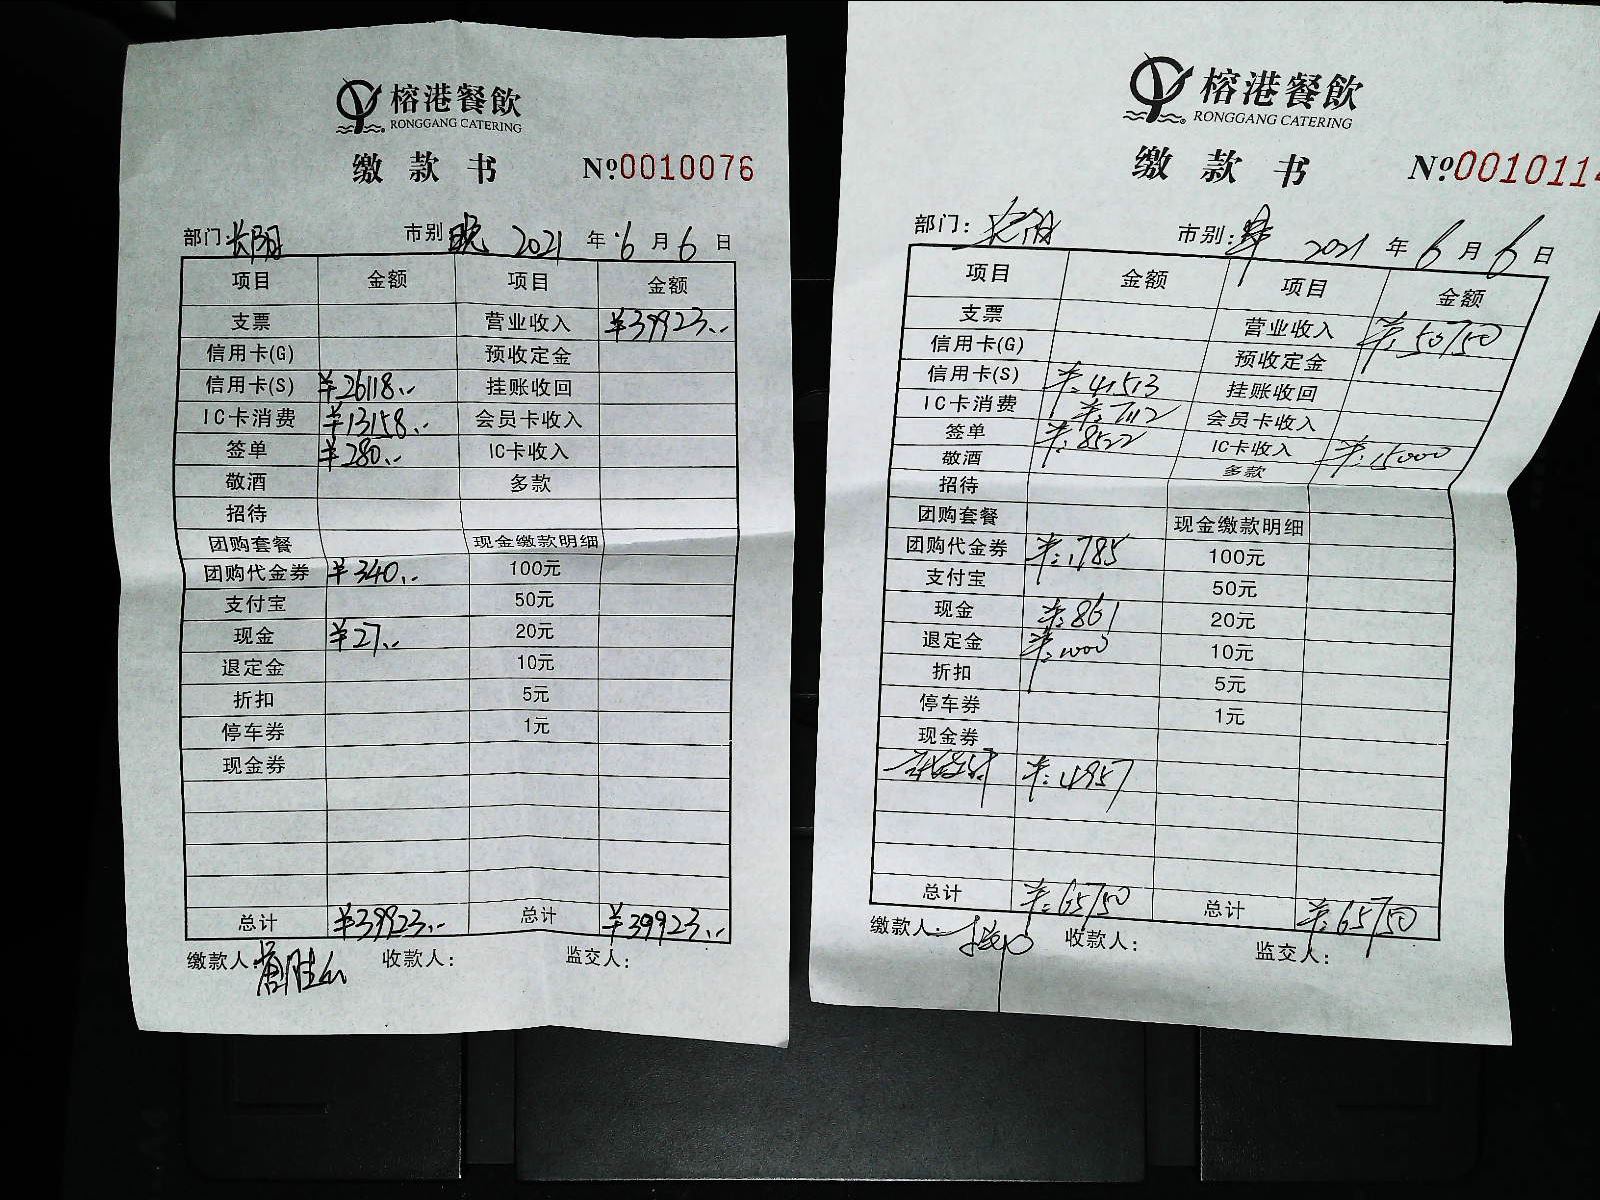 榕港餐飲
RONGGANG CATERING
缴款书 №0010076
部门: 长阳 市别 晚 2021年6月6日
项目 金额 项目 金额
支票 营业收入 ¥39923..
信用卡(G) 预收定金
信用卡(S) ¥26118.. 挂账收回
IC卡消费 ¥13158.. 会员卡收入
签单 ¥280.. IC卡收入
敬酒 多款
招待
团购套餐 现金缴款明细
团购代金券 ¥340.. 100元
支付宝 50元
现金 ¥27.. 20元
退定金 10元
折扣 5元
停车券 1元
现金券
总计 ¥39923.. 总计 ¥39923..
缴款人: 收款人: 监交人:
榕港餐飲
RONGGANG CATERING
缴款书 №001011
部门: 长阳 市别: 早 2021年6月6日
项目 金额 项目 金额
支票 营业收入 ¥:50750
信用卡(G) 预收定金
信用卡(S) ¥:41513 挂账收回
IC卡消费 ¥:7112 会员卡收入
签单 ¥:8522 IC卡收入 ¥:15000
敬酒 多款
招待
团购套餐 现金缴款明细
团购代金券 ¥:1785 100元
支付宝 50元
现金 ¥:861 20元
退定金 ¥:1000 10元
折扣 5元
停车券 1元
现金券
¥:4957
总计 ¥:65750 总计 ¥:65750
缴款人: 收款人: 监交人: